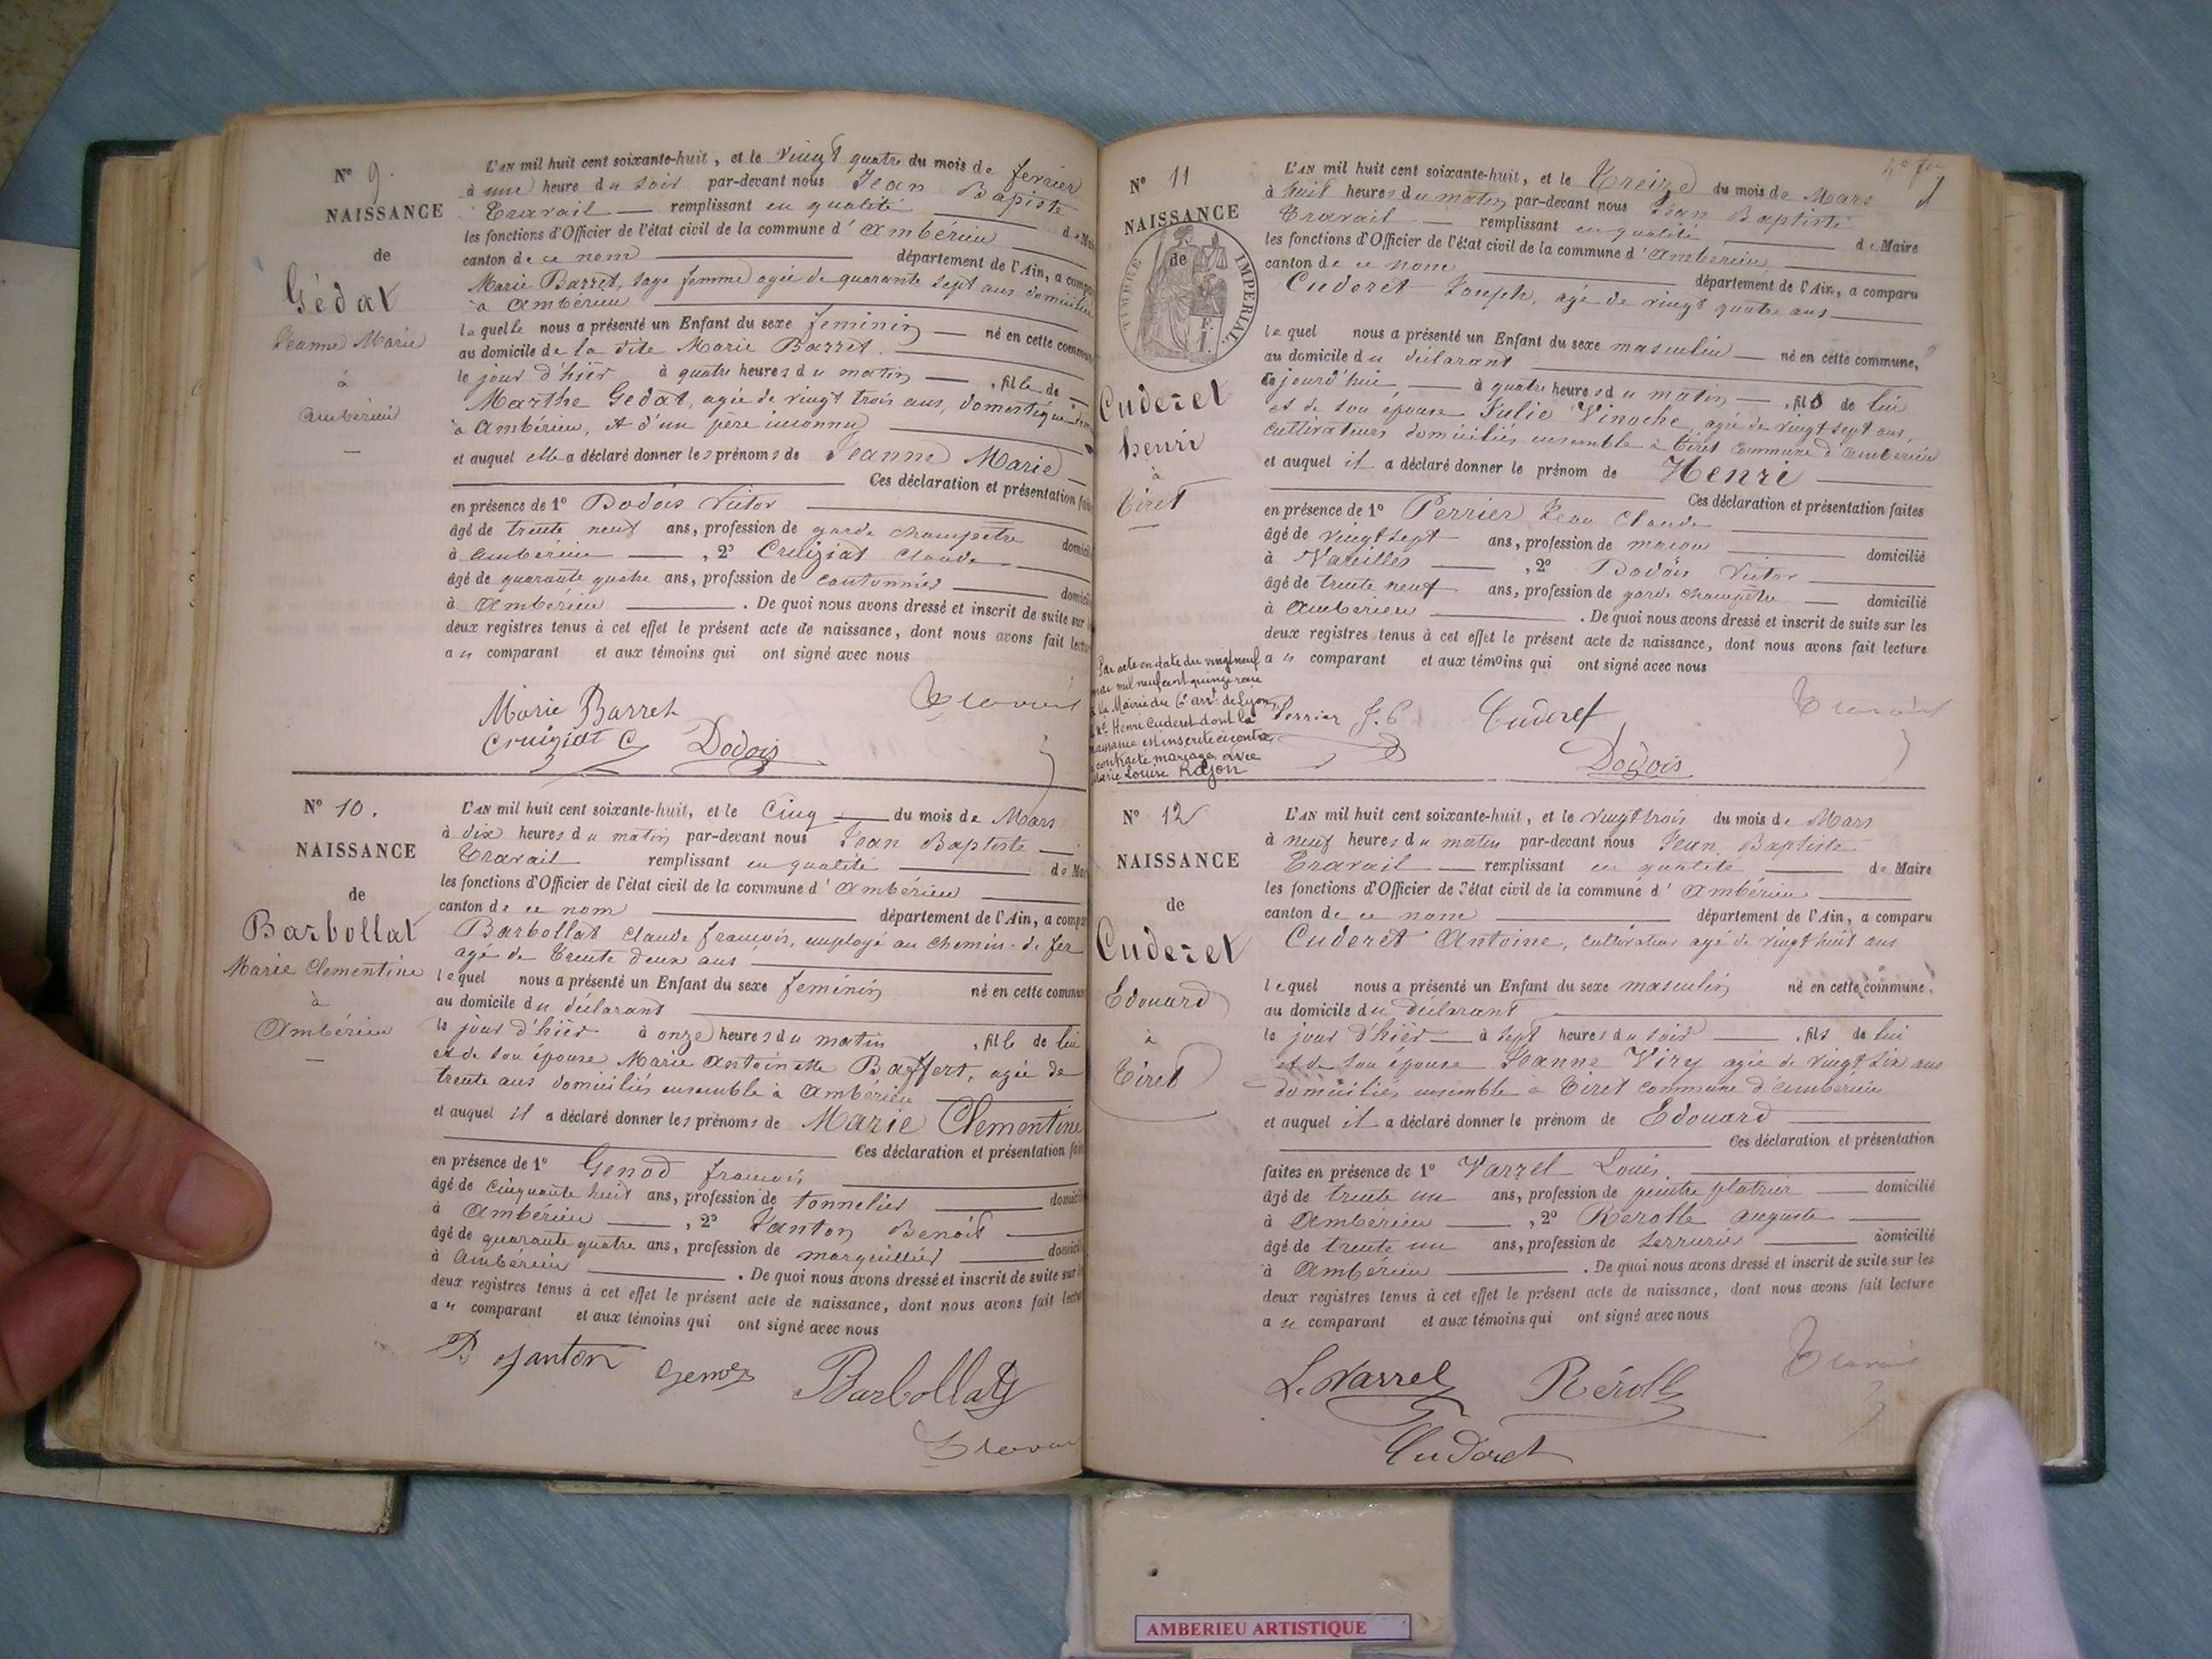 N° 9.
NAISSANCE
de
Gédat
Jeanne Marie
à
Ambérieu
L'AN mil huit cent soixante-huit, et le Vingt quatre du mois de fevrier
à une heure du soir par-devant nous Jean Baptiste
Travail remplissant en qualité de
les fonctions d'Officier de l'état civil de la commune d'Ambérieu
canton de ce nom département de l'Ain, a
Marie Barret, sage femme agée de quarante sept ans
à Ambérieu
laquelle nous a présenté un Enfant du sexe feminin né en cette
au domicile de la dite Marie Barret.
le jour d'hier à quatre heures du matin, fille de
Marthe Gedat, agée de vingt trois ans, domestique
à Ambérieu, et d'un père inconnu
et auquel elle a déclaré donner les prénoms de Jeanne Marie
Ces déclaration et présentation
en présence de 1° Dodois Victor
âgé de trente neuf ans, profession de garde champetre
à Ambérieu, 2° Cruiziat Claude
âgé de quarante quatre ans, profession de cantonnier
à Ambérieu. De quoi nous avons dressé et inscrit de suite sur
deux registres tenus à cet effet le présent acte de naissance, dont nous avons fait
au comparant et aux témoins qui ont signé avec nous
Marie Barret
Cruiziat C Dodois
N° 10.
NAISSANCE
de
Barbollat
Marie Clementine
à
Ambérieu
L'AN mil huit cent soixante-huit, et le Cinq du mois de Mars
à dix heures du matin par-devant nous Jean Baptiste
Travail remplissant en qualité de
les fonctions d'Officier de l'état civil de la commune d'Ambérieu
canton de ce nom département de l'Ain, a
Barbollat Claude francois, employé au chemin-de fer
agé de trente deux ans
lequel nous a présenté un Enfant du sexe feminin né en cette
au domicile du déclarant
le jour d'hier à onze heures du matin, fille de lui
et de son épouse Marie Antoinette Baffert, agée de
trente ans domiciliés ensemble à Ambérieu
et auquel il a déclaré donner les prénoms de Marie Clementine
Ces déclaration et présentation
en présence de 1° Genod francois
âgé de cinquante huit ans, profession de tonnelier
à Ambérieu, 2° Janton Benoit
âgé de quarante quatre ans, profession de marguillier
à Ambérieu. De quoi nous avons dressé et inscrit de suite sur
deux registres tenus à cet effet le présent acte de naissance, dont nous avons fait
au comparant et aux témoins qui ont signé avec nous
B Janton Genod Barbollat
N° 11
NAISSANCE
de
TIMBRE IMPERIAL
Cuderet
henri
à
Tiret
L'AN mil huit cent soixante-huit, et le Treize du mois de Mars
à huit heures du matin par-devant nous Jean Baptiste
Travail remplissant en qualité de Maire
les fonctions d'Officier de l'état civil de la commune d'Ambérieu
canton de ce nom département de l'Ain, a comparu
Cuderet Joseph, agé de vingt quatre ans
lequel nous a présenté un Enfant du sexe masculin né en cette commune,
au domicile du déclarant
jourd'hui à quatre heures du matin, fils de lui
et de son épouse Julie Vinoche, agée de vingt sept ans,
cultivateurs domiciliés ensemble à Tiret Commune d'Ambérieu
et auquel il a déclaré donner le prénom de Henri
Ces déclaration et présentation faites
en présence de 1° Perrier Jean Claude
âgé de vingt sept ans, profession de macon domicilié
à Vareilles, 2° Dodois Victor
âgé de trente neuf ans, profession de garde champetre domicilié
à Amberieu. De quoi nous avons dressé et inscrit de suite sur les
deux registres tenus à cet effet le présent acte de naissance, dont nous avons fait lecture
au comparant et aux témoins qui ont signé avec nous
Par acte en date du vingt neuf
mai mil neuf cent quinze recu
à la Mairie du 6e arrt de Lyon,
Henri Cuderet dont la
naissance est inscrite ci contre,
a contracté mariage avec
Marie Louise Rajon
Perrier J. C Cuderet
Dodois
N° 12
NAISSANCE
de
Cuderet
Edouard
à
Tiret
L'AN mil huit cent soixante-huit, et le vingt trois du mois de Mars
à neuf heures du matin par-devant nous Jean Baptiste
Travail remplissant en qualité de Maire
les fonctions d'Officier de l'état civil de la commune d'Ambérieu
canton de ce nom département de l'Ain, a comparu
Cuderet Antoine, cultivateur agé de vingt huit ans
lequel nous a présenté un Enfant du sexe masculin né en cette commune.
au domicile du déclarant
le jour d'hier à sept heures du soir, fils de lui
et de son épouse Jeanne Viry agée de vingt six ans
domiciliés ensemble à Tiret commune d'Ambérieu
et auquel il a déclaré donner le prénom de Edouard
Ces déclaration et présentation
faites en présence de 1° Varrel Louis,
âgé de trente un ans, profession de peintre platrier domicilié
à Ambérieu, 2° Rerolle Auguste
âgé de trente un ans, profession de serrurier domicilié
à Ambérieu. De quoi nous avons dressé et inscrit de suite sur les
deux registres tenus à cet effet le présent acte de naissance, dont nous avons fait lecture
au comparant et aux témoins qui ont signé avec nous
L. Varrel Rérolle
Cuderet
AMBERIEU ARTISTIQUE